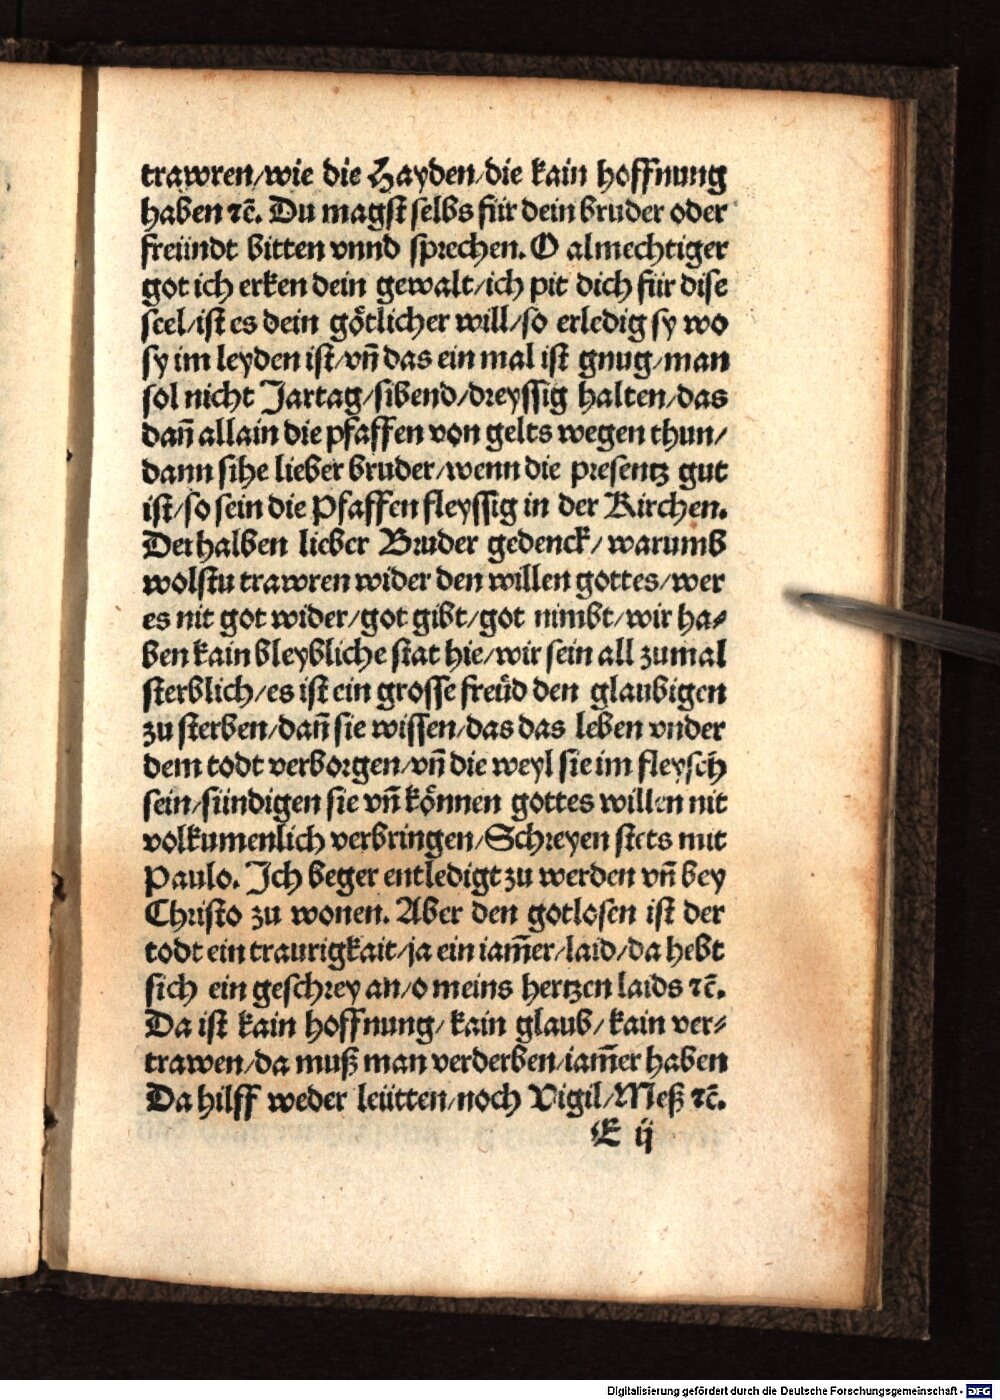 trawren/wie die Hayden/die kain hoffnung
haben ꝛc̄. Du magst selbs für dein bruder oder
freündt bitten vnnd sprechen. O almechtiger
got ich erken dein gewalt/ich pit dich für dise
seel/ist es dein götlicher will/so erledig sy wo
sy im leyden ist/vn̄ das ein mal ist gnug/man
sol nicht Jartag/sibend/dreyssig halten/das
dan̄ allain die pfaffen von gelts wegen thun/
dann sihe lieber bruder/wenn die presentz gut
ist/so sein die Pfaffen fleyssig in der Kirchen.
Derhalben lieber Bruder gedenck/warumb
wolstu trawren wider den willen gottes/wer
es nit got wider/got gibt/got nimbt/wir ha⸗
ben kain bleybliche stat hie/wir sein all zumal
sterblich/es ist ein grosse freüd den glaubigen
zu sterben/dan̄ sie wissen/das das leben vnder
dem todt verborgen/vn̄ die weyl sie im fleysch
sein/sündigen sie vn̄ können gottes willen nit
volkumenlich verbringen/Schreyen stets mit
Paulo. Ich beger entledigt zu werden vn̄ bey
Christo zu wonen. Aber den gotlosen ist der
todt ein traurigkait/ja ein iam̄er/laid/da hebt
sich ein geschrey an/o meins hertzen laids ꝛc̄.
Da ist kain hoffnung/kain glaub/kain ver⸗
trawen/da muß man verderben/iam̄er haben
Da hilff weder leütten/noch Vigil/Meß ꝛc̄.
E ij
Digitalisierung gefördert durch die Deutsche Forschungsgemeinschaft - DFG